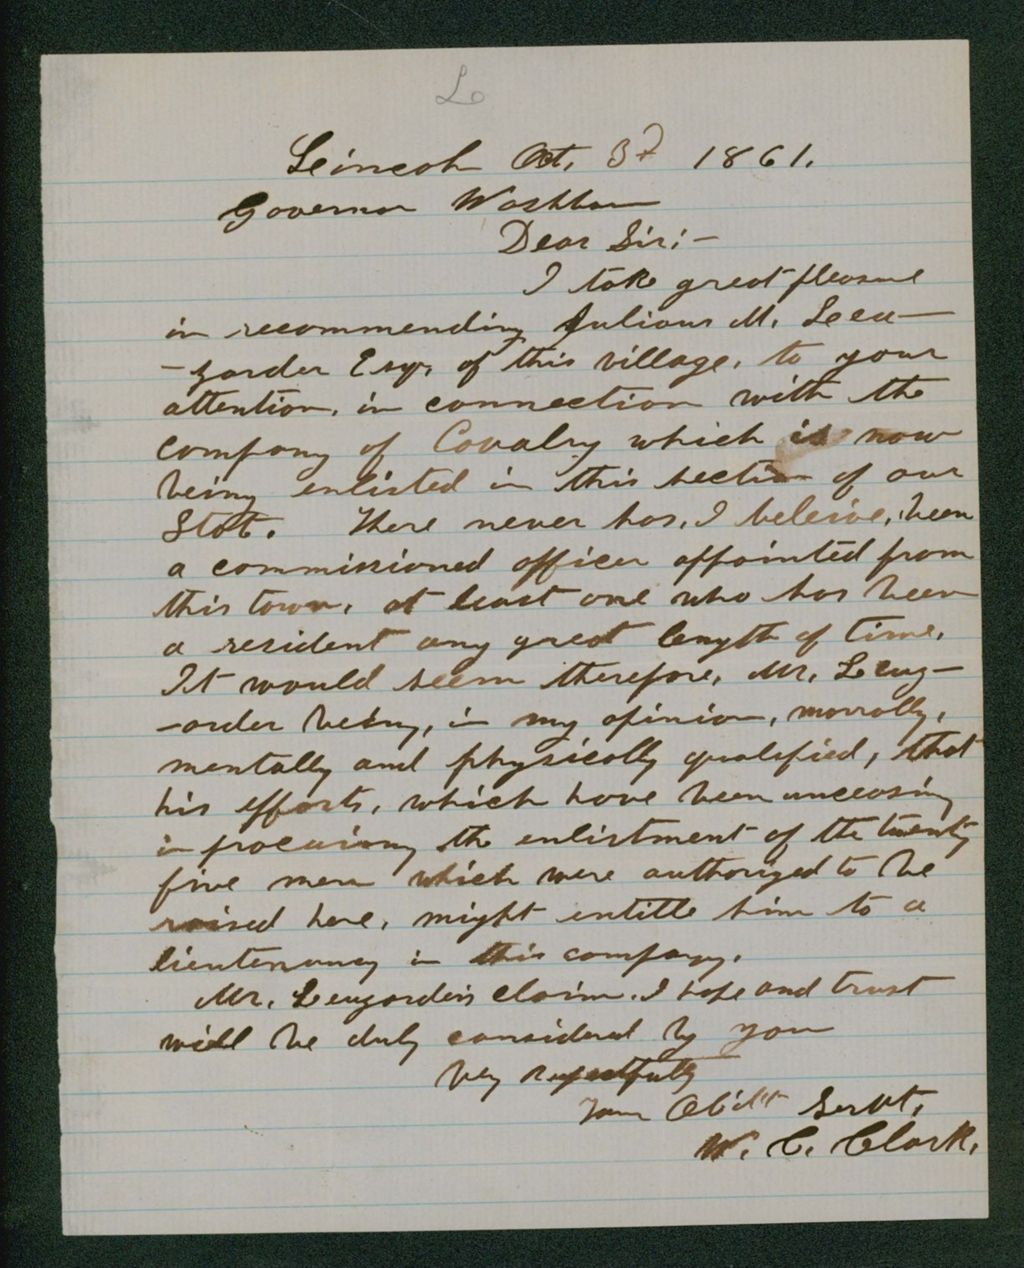 Lo
Lincoln Oct. 3d 1861.
Governor Washburn
Dear Sir:-
I take great pleasure
in recommending Julious M. Leeu-
-zarder Esqr. of this village, to your
attention, in connection with the
company of Cavalry which is now
being enlisted in this section of our
State. There never has, I beleive, been
a commissioned officer appointed from
this town, at least one who has been
a resident any great length of time.
It would seem therefore, Mr. Leuz-
-arder being, in my opinion, morrally,
mentally and physically qualified, that
his efforts, which have been unceasing
in procuring the enlistment of the twenty
five men which were authorized to be
raised here, might entitle him to a
lieutenancy in this company.
Mr. Leuzarder's claim. I hope and trust
will be duly considered by you
Very Respectfully
Your Obdt Servt,
W. C. Clark.